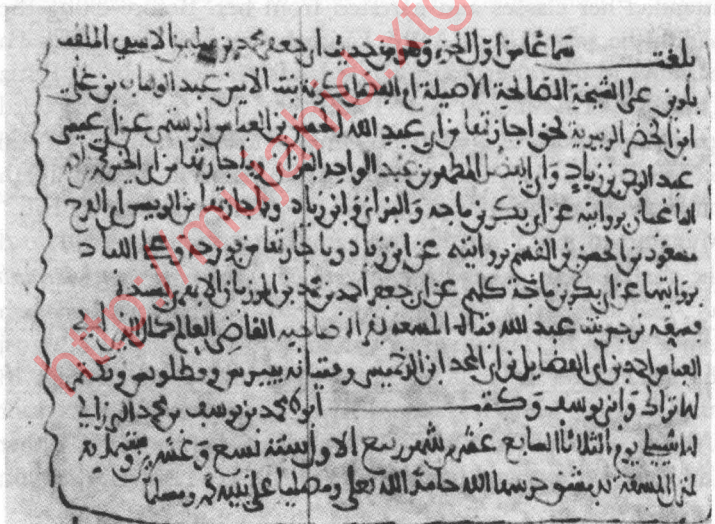 بلغت سماعا من اول الجزء وهو من حديث أبي جعفر محمد بن سليمن الاسدي الملقب
بلوين على الشيخة الصالحة الاصيلة ام الفضل كريمة بنت الامين عبد الوهاب بن علي
ابن الخضر الزبيرية بحق اجازتها من ابي عبد الله الحسن بن العباس الرستمي عن ابي عيسى
عبد الرحمن بن زياد وابي الفضل المطهر بن عبد الواحد البزاني وباجازتها من ابي الخير محمد بن
الباغبان بروايته عن ابي بكر بن ماجه والبزاني وابن زياد وباجازتها من الرييس ابي الفرج
مسعود بن الحسن بن القسم بروايته عن ابن زياد وباجازتها من
بروايتهما عن ابي بكر بن ماجة كلهم عن ابي جعفر احمد بن محمد بن المرزبان الابهري بسنده
فسمعه بنت عبد الله فتاة المسمعة بقراة صاحبه القاضي العالم كمال الدين ابي
العباس احمد بن ابي الفضايل بن ابي المجد ابن الدخميسي وفتيانه بيبرس و
وابن يوسف وكتب ابو محمد بن يوسف بن محمد البرزالي
الاشبيلي يوم الثلاثا السابع عشر من شهر ربيع الاول سنة تسع وعشرين وستماية
بمنزل المسمعة بدمشق حرسها الله حامدا لله تعلى ومصليا على نبيه محمد ومسلما
http://mujahid.xtg